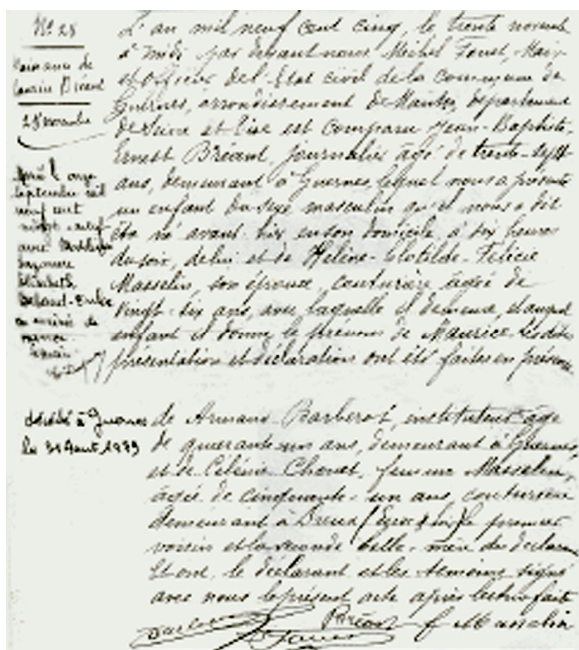 Nº 28
Naissance de
Maurice Bréant
28 novembre
Marié le onze
septembre mil
neuf cent
vingt-neuf
avec
Suzanne
Elisabeth
en mairie de
décédé à Guernes
le 31 Aout 1979
L'an mil neuf cent cinq, le trente novembre
à midi par devant nous Michel, Maire
et officier de l'Etat civil de la Commune de
Guernes, arrondissement de Mantes, département
de Seine et Oise est comparu Jean-Baptiste
Ernest Bréant, journalier âgé de trente-sept
ans, demeurant à Guernes, lequel nous a présenté
un enfant du sexe masculin qu'il nous a dit
être né avant hier en son domicile à six heures
du soir, de lui et de Hélène-Clotilde-Félicie
Masselin, son épouse, couturière âgée de
vingt-six ans, avec laquelle il demeure, et auquel
enfant il donne le prénom de Maurice. Lesdites
présentation et déclaration ont été faites en présence
de Armand Barberot, instituteur âgé
de quarante ans, demeurant à Guernes
et de Célénie Chouet, femme Masselin,
âgée de cinquante-un ans, couturière
demeurant à Breval le premier
voisin et la seconde belle-mère du déclarant
Et ont, le déclarant et les témoins signé
avec nous le présent acte après lecture faite
Bréant f Masselin